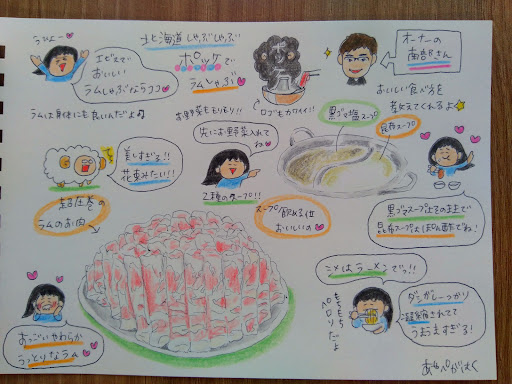 うひょー
エビスで
おいしい
ラムしゃぶならココ
ラムは身体にも良いんだよ♫
北海道しゃぶしゃぶ
ポッケで
ラムしゃぶ
お野菜ももりもり!!
ロゴもカワイイ!!
オーナーの
南部さん
おいしい食べ方を
教えてくれるよ
美しすぎる!!
花束みたい!!
先にお野菜入れて
ね
2種のスープ!!
黒ゴマ塩スープ
昆布スープ
スープ飲める位
おいしいの
黒ゴマスープはそのままで
昆布スープはぽん酢でね!
超圧巻の
ラムのお肉
〆はラーメンでっ!!
もちもち
ペロリだよ
ダシがしーっかり
凝縮されてて
うまうますぎる!
すっごいやわらか
うっとりなラム